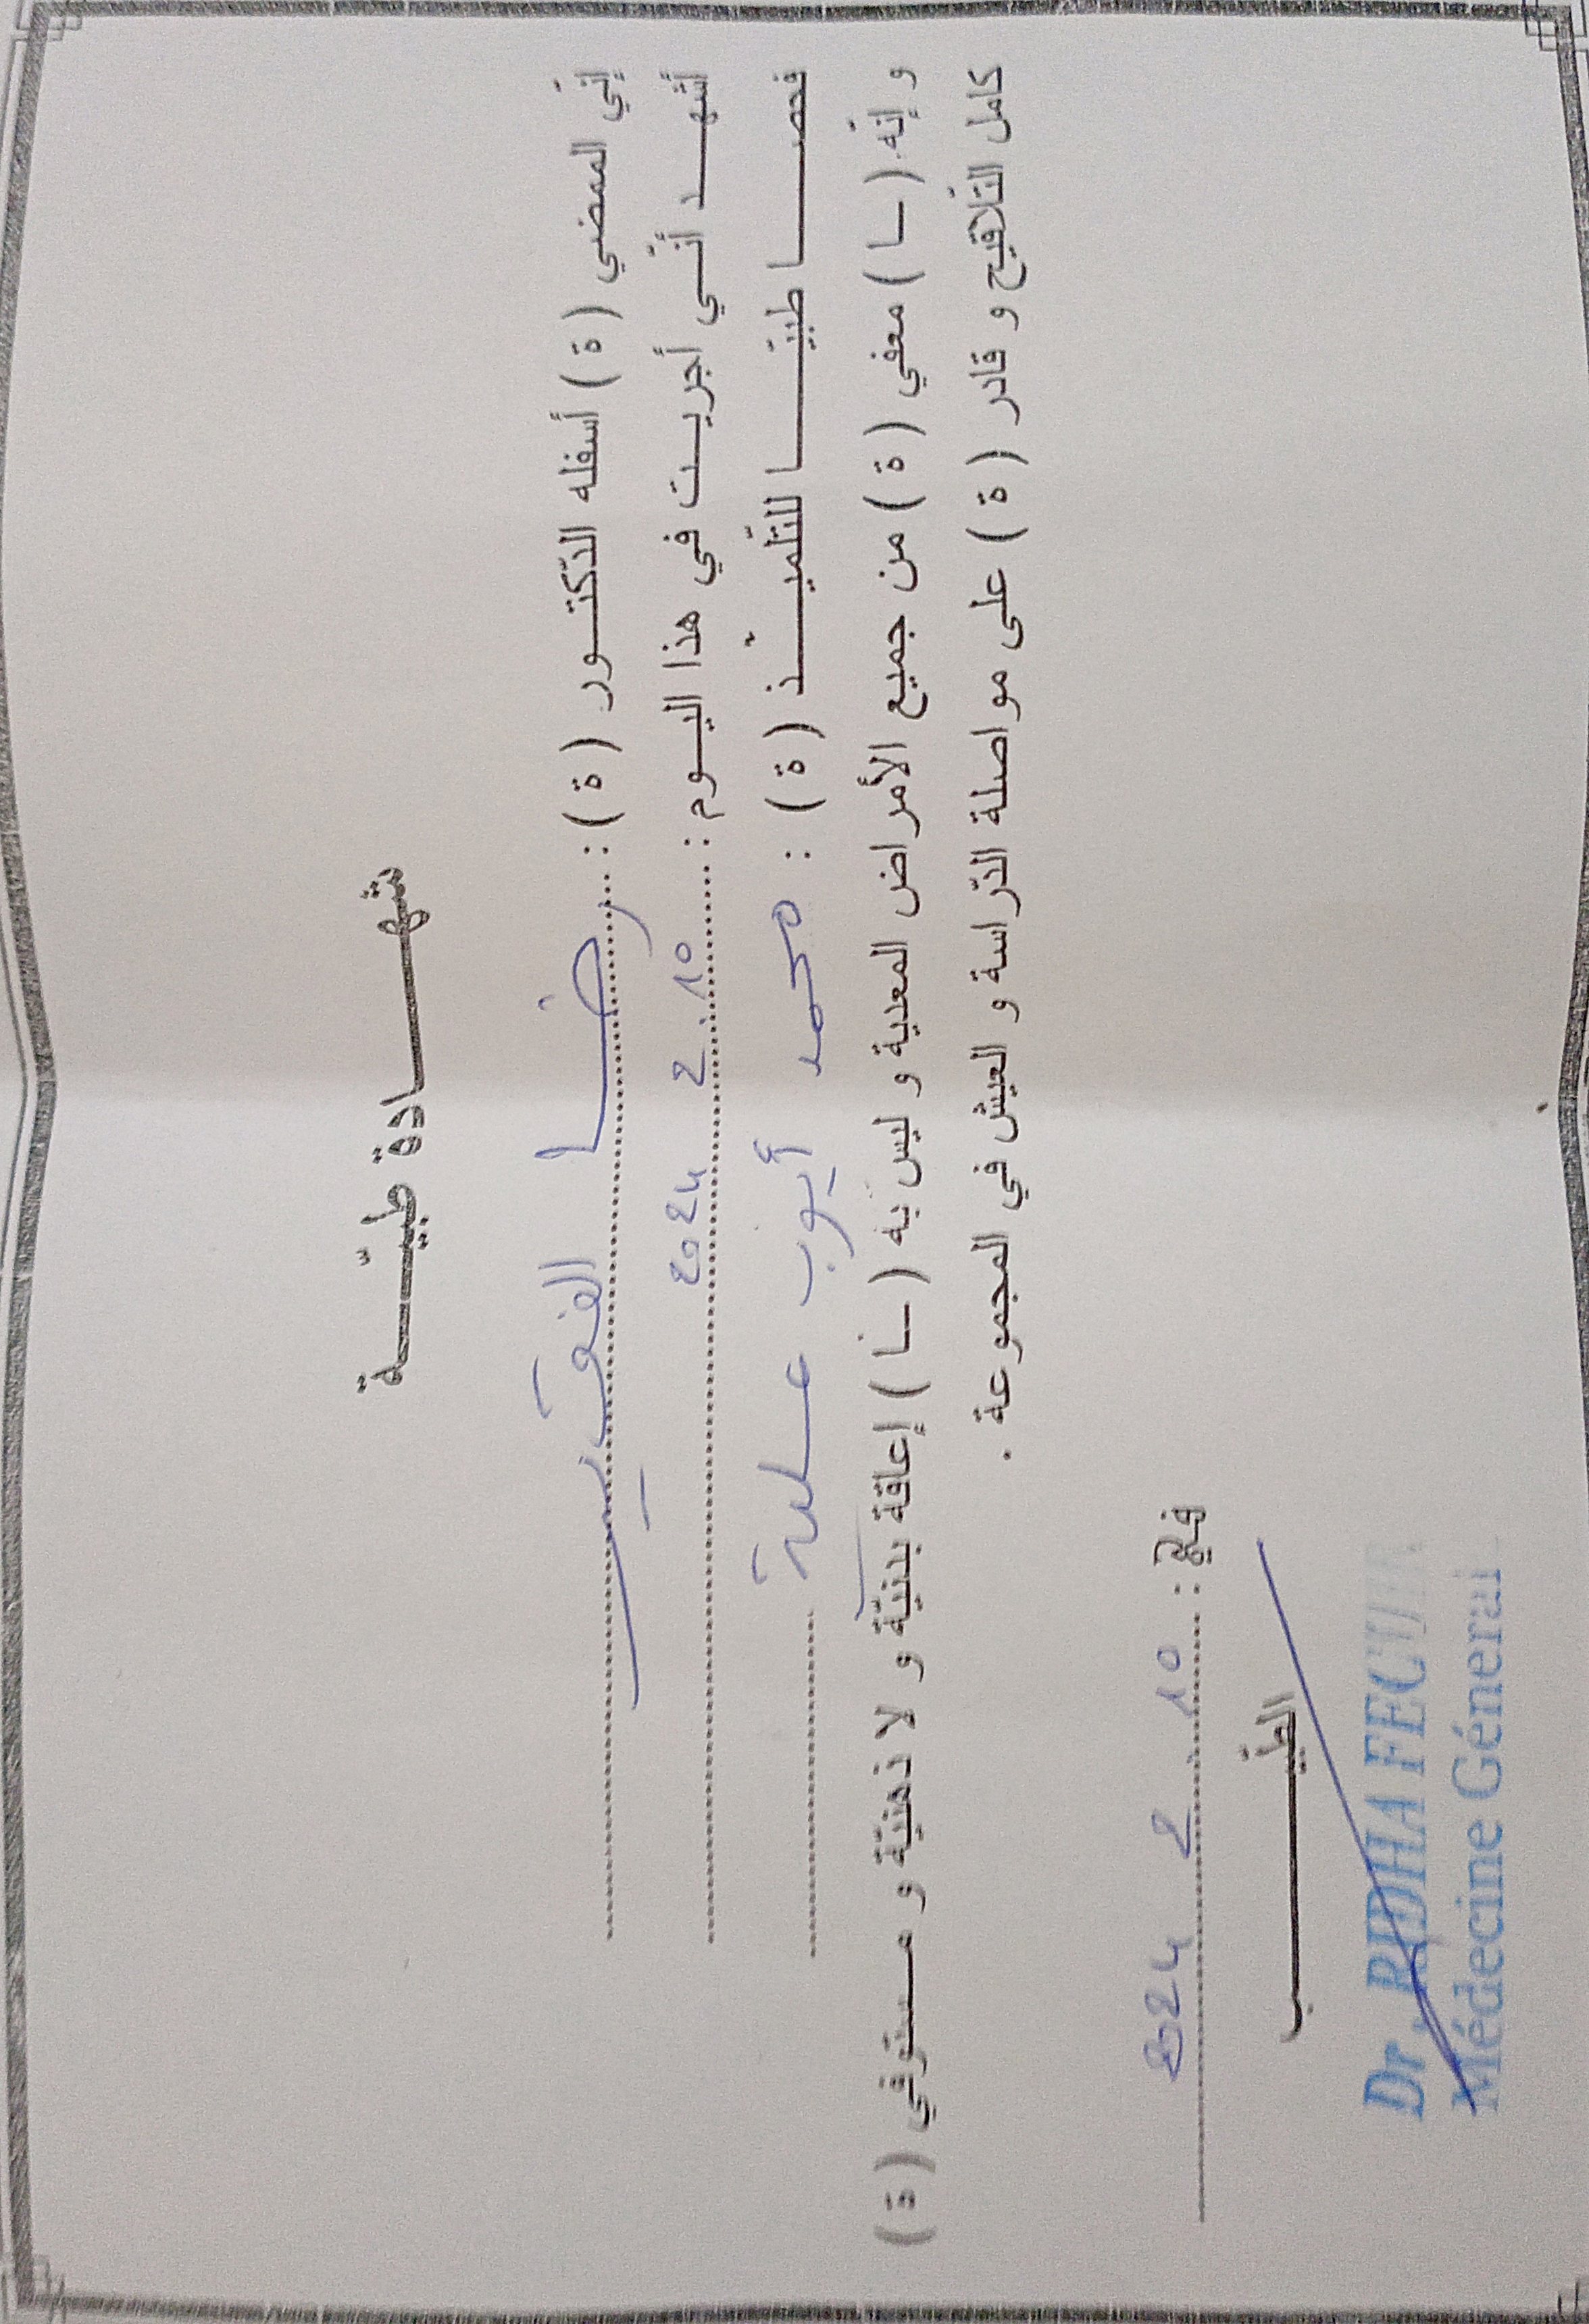 شهـــــــادة طبيّـــــــة
إنّي الممضي ( ة ) أسفله الدّكتـــور ( ة ) : رضا الفقيـــر
أشهـــد أنّـــي أجريـــت في هذا اليـــوم : 10 2 2024
فحصـــــا طبيّـــــا للتّلميـــــذ ( ة ) : محمد أيوب عـلية
و إنّه ( ـا ) معفي ( ة ) من جميع الأمراض المعدية و ليس به ( ـا ) إعاقة بدنيّة و لا ذهنيّة و مستوفي ( ة )
كامل التّلاقيح و قادر ( ة ) على مواصلة الدّراسة و العيش في المجموعة .
في : 10 2 2024
الطّبيـــــــب
Dr. RIDHA
Médecine Général